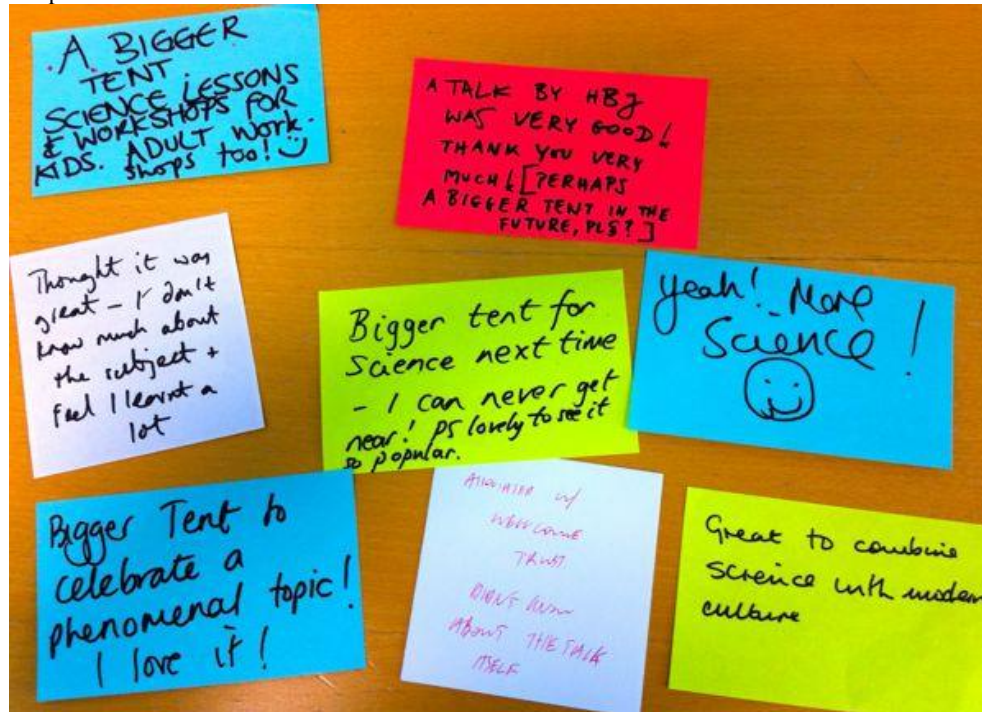 A BIGGER
TENT
SCIENCE LESSONS
& WORKSHOPS FOR
KIDS. ADULT WORK-
shops too!
A TALK BY HBJ
WAS VERY GOOD!
THANK YOU VERY
MUCH! [PERHAPS
A BIGGER TENT IN THE
FUTURE, PLS?]
Thought it was
great – I don't
know much about
the subject +
feel I learnt a
lot
Bigger tent for
science next time
- I can never get
near! PS lovely to see it
so popular.
yeah! More
Science!
Bigger Tent to
celebrate a
phenomenal topic!
I love it!
ASSOCIATED w/
WELLCOME
TRUST
DIDN'T KNOW
ABOUT THE TALK
ITSELF
Great to combine
science with modern
culture